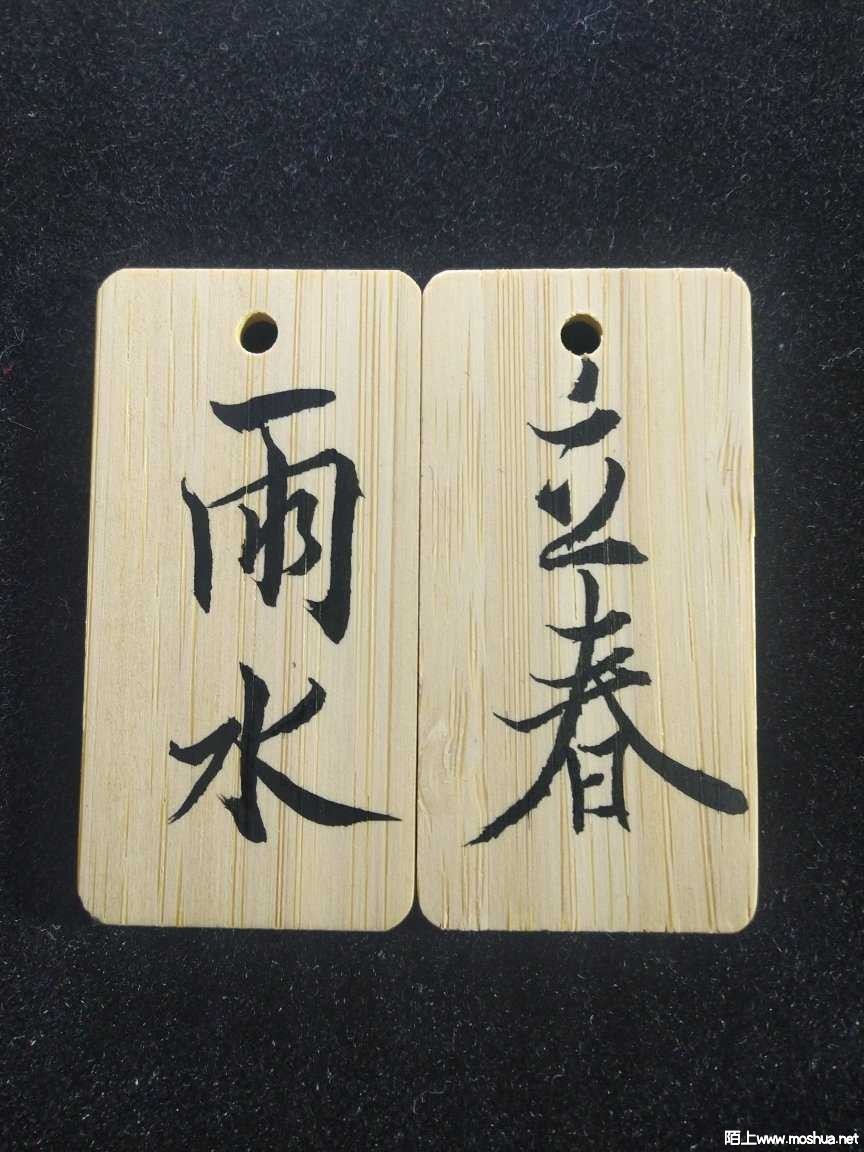 立春
雨水
陌上www.moshua.net